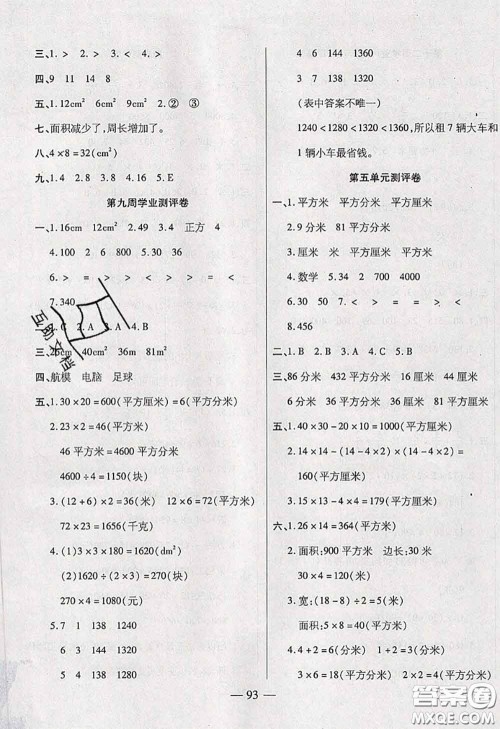 三、1.> 2.> 3.< 4.>
四、9 11 14 8
五、1.12cm² 6cm² 9cm² 2.② ③
七、面积减少了,周长增加了。
八、4×8=32(cm²)
九、1.4 2.8 3.8 4.B
第九周学业测评卷
一、1.16cm 12cm² 2.49 3.4 正方 4
4.100 2 6 5.35 800 86
6.> = > < > > = <
7.340
C 2.A 3.A 4.B
三、26cm 40cm² 36m 81m²
四、航模 电脑 足球
五、1.30×20=600(平方厘米)=6(平方分米)
2.23×2=46(平方米)
46平方米=4600平方分米
4600÷4=1150(块)
3.(12+6)×2=36(米) 12×6=72(平方米)
72×23=1656(千克)
4.(1)3×3×20=180(dm²)
(2)1620÷6=270(块)
270×4=1080(元)
5.7 1 138 1240
6 3 144 1320
5 4 138 1280
4 6 144 1360
3 7 138 1320
(表中答案不唯一)
1240<1280<1320<1360,所以租7辆大车和
1辆小车最省钱。
第五单元测评卷
一、1.平方米 平方厘米 平方分米
2.9 分米 81 平方分米
3.厘米 米 平方厘米 平方米
4.数学 5.34 2 700 4000
6.30 7.< > < = > <
8.456
二、1.B 2.B 3.A 4.B 5.A
三、86 分米 432 平方分米 16 厘米 16 平方厘米
44 厘米 105 平方厘米 36 米 81 平方米
五、1.40×30-20×10=1000(平方厘米)
2.14×14-(14-4×2)×(14-4×2)=
160(平方厘米)
3.15×14-(15-4)=179(平方厘米)
六、1.26×14=364(平方米)
2.面积:900 平方米 边长:30 米
30×4=120(米)
3.宽:(18-8)÷2=5(米)
面积:5×8=40(平方米)
4.4+2=6(分米) 2+2=4(分米)
3×6=18(平方分米) 2×2=4(平方分米)
— 93 —
互助文档
答案圈
MXQE.COM